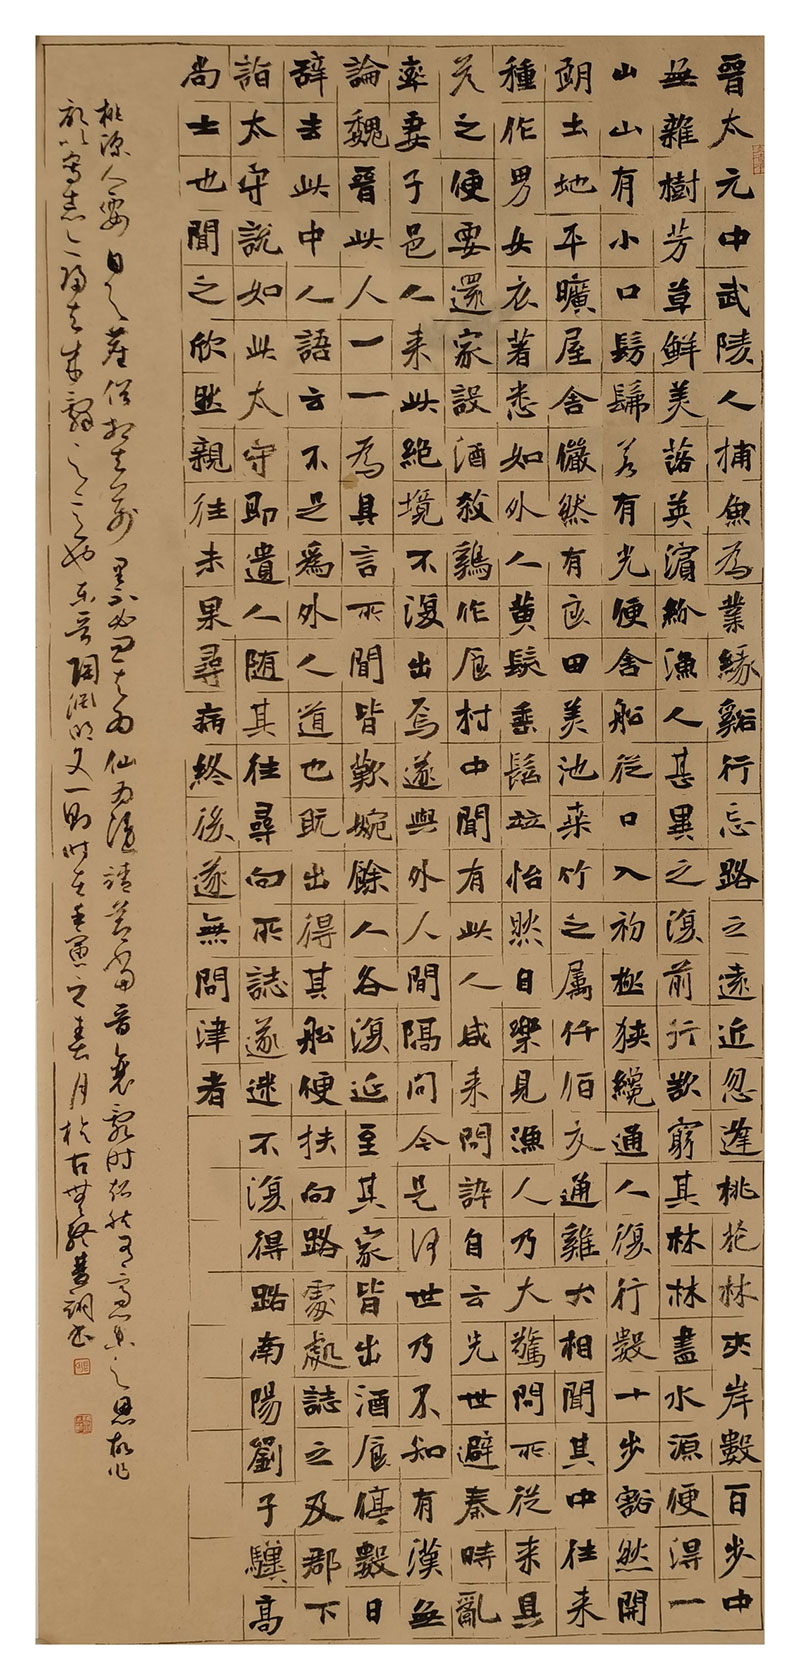 晉太元中武陵人捕魚為業緣谿行忘路之遠近忽逢桃花林夾岸數百步中
無雜樹芳草鮮美落英濱紛漁人甚異之復前行欲窮其林林盡水源便得一
山山有小口髣髴若有光便舍船從口入初極狹纔通人復行數十步豁然開
朗土地平曠屋舍儼然有良田美池桑竹之属仟佰交通雞犬相聞其中往来
種作男女衣著悉如外人黄髮垂髫竝怡然自樂見漁人乃大驚問所從来具
答之便要還家設酒殺鷄作食村中聞有此人咸来問訊自云先世避秦時亂
率妻子邑人来此絶境不復出焉遂與外人間隔問今是何世乃不知有漢無
論魏晉此人一一為具言所聞皆歎婉餘人各復延至其家皆出酒食停數日
辭去此中人語云不足為外人道也既出得其船便扶向路處處誌之及郡下
詣太守說如此太守即遺人随其往尋向所誌遂迷不復得路南陽劉子驥高
尚士也聞之欣然親往未果尋病終後遂無問津者
桃源人
東晉陶淵明文一則時在之春月於古無終